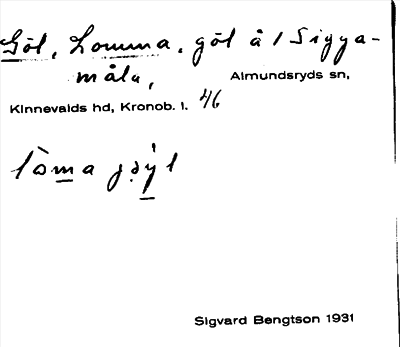 Göl, Lomma, göl å / Sigga-
måla, Almundsryds sn,
Kinnevalds hd, Kronob. l. 46
lòma
Sigvard Bengtson 1931